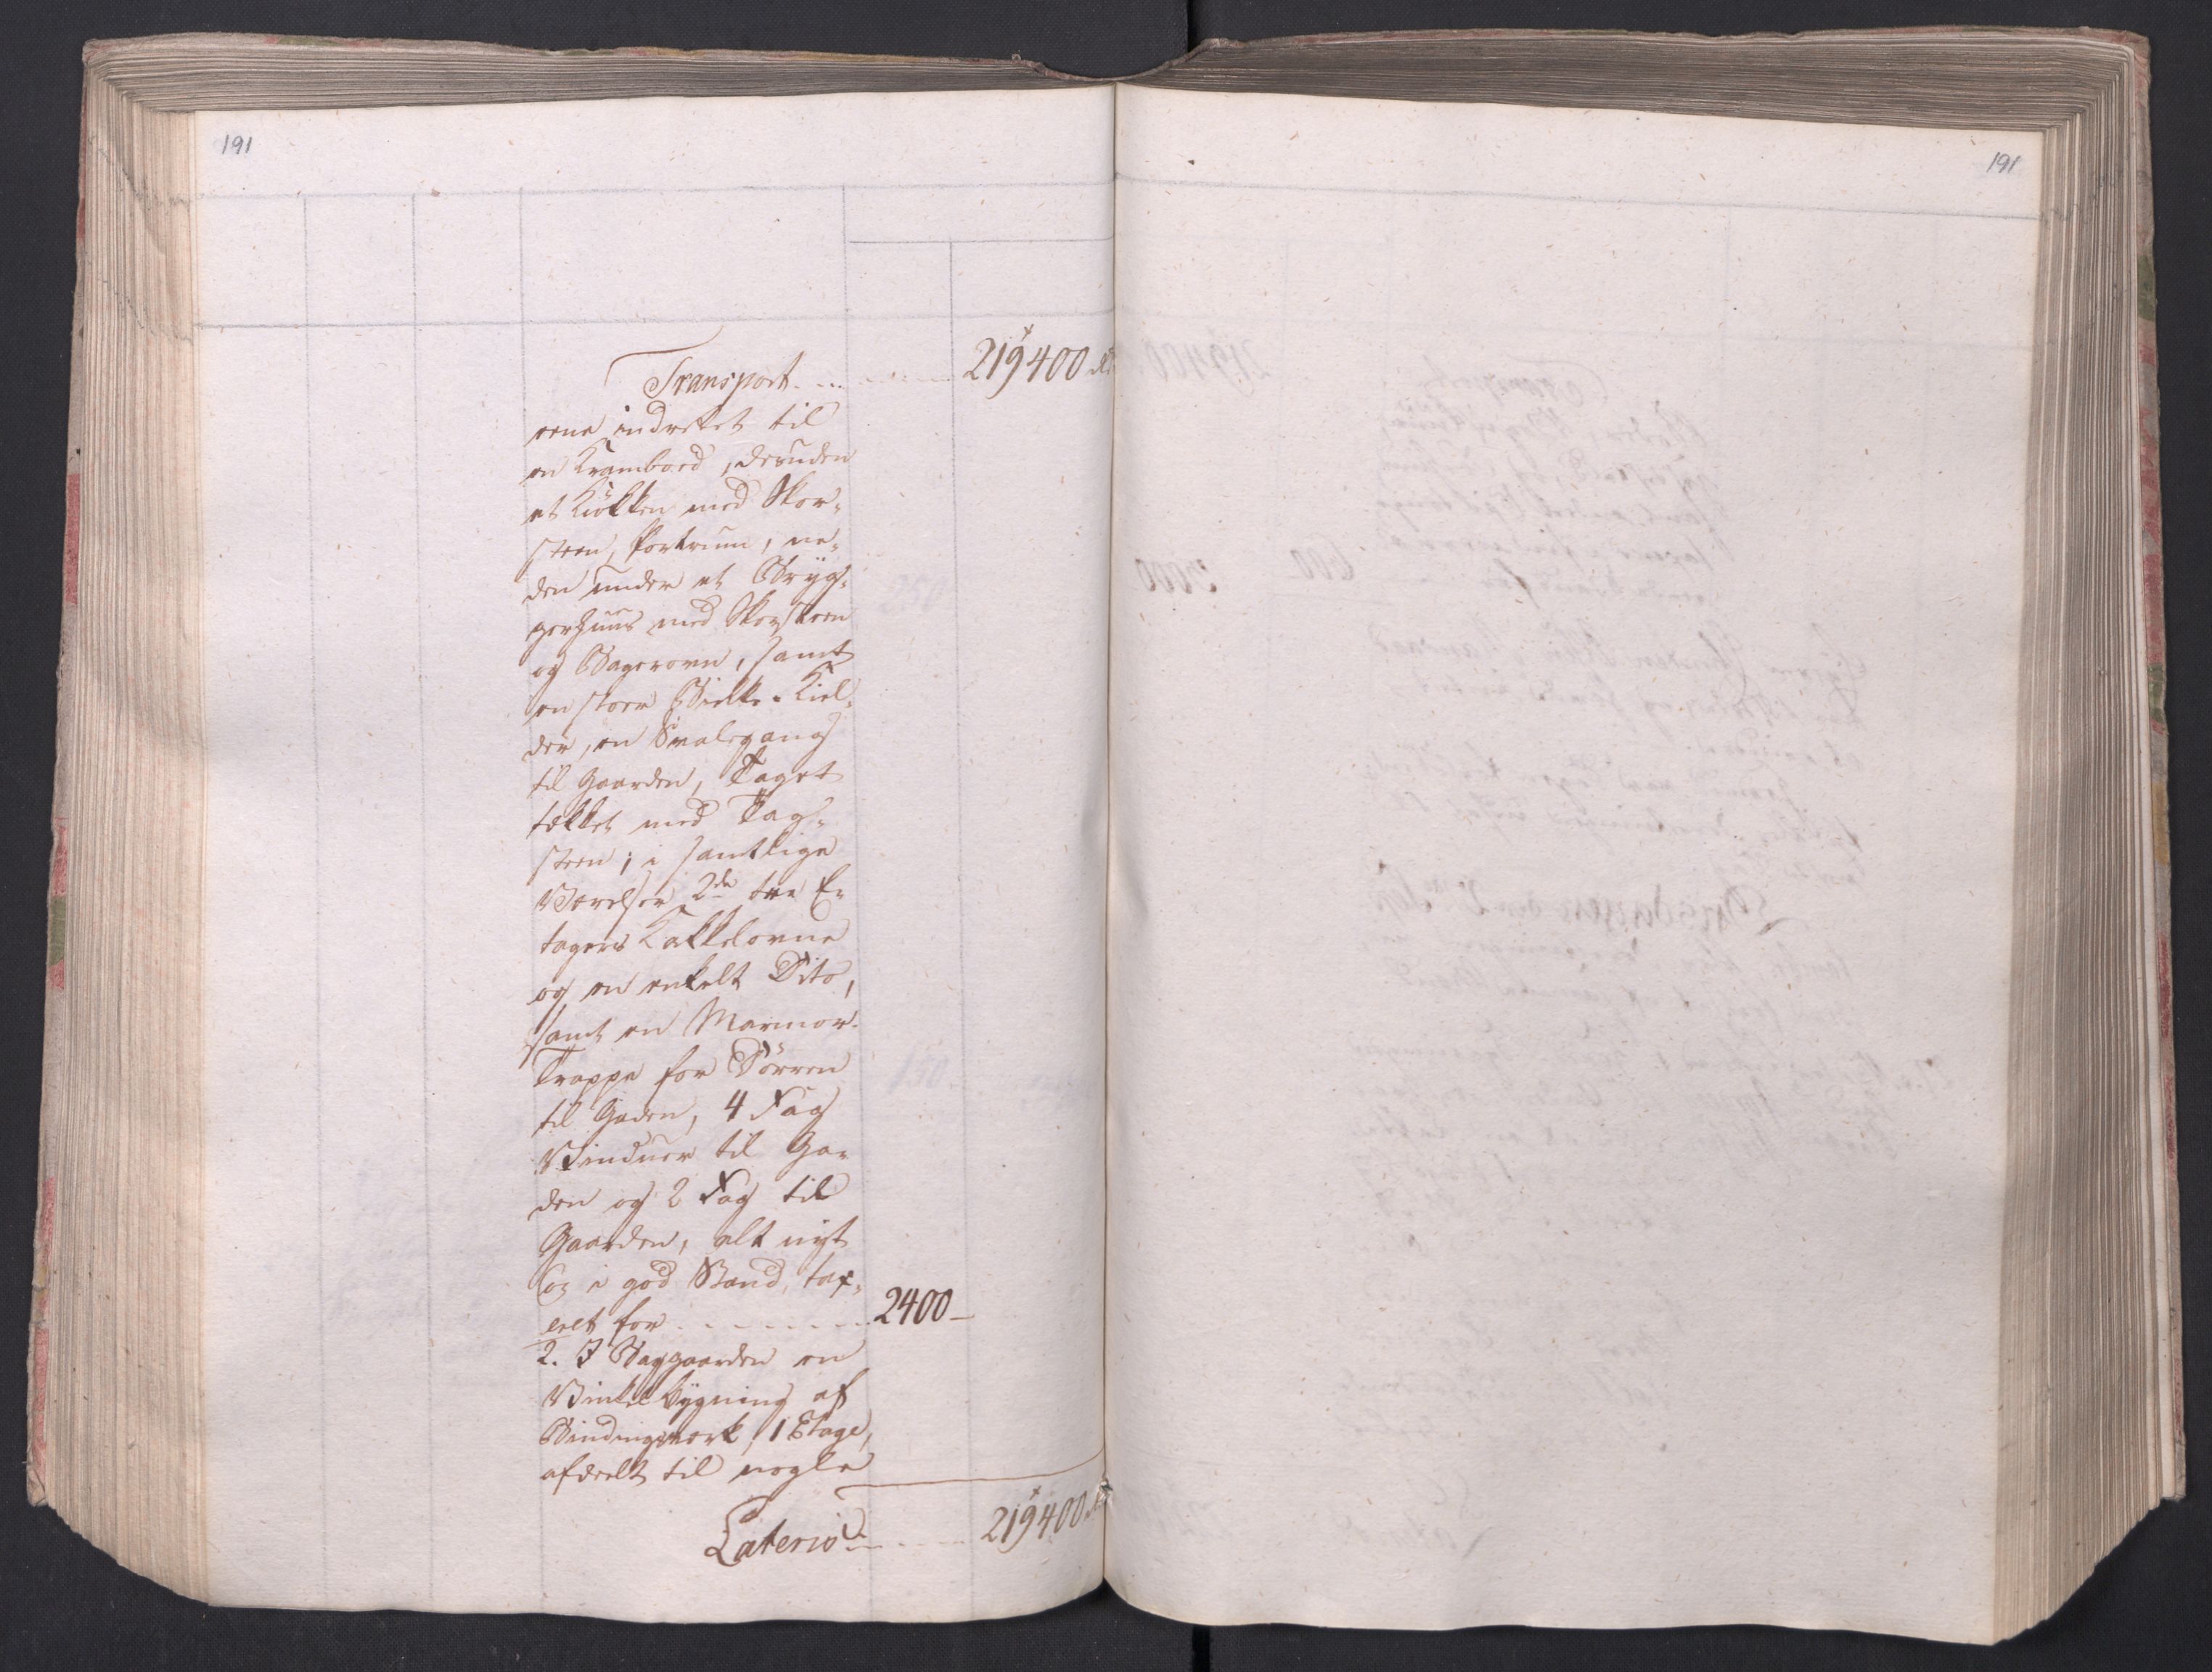 191
191
Transport. .. 219400 rd
erne indrettet til
en Kramboed, desuden
et Kiökken med Skor-
steen, Portrum, ne-
den under et Bryg-
gerhuus med Skorsteen
og Bagerovn, samt
en stoer Bielke-Kiel-
der, en Svalegang
til Gaarden, Taget
tækket med Tag-
steen; i samtlige
Værelser 2de tre E-
tagers Kakkelovne
og en enkelt Dito,
samt en Marmor-
Trappe for Dörren
til Gaden, 4 Fag
Vinduer til Ga-
den og 2 Fag til
Gaarden, alt nyt
og i god Stand, tax-
eret for . . . . . . 2400 -
2. I Baggaarden en
Vinkelbygning af
Bindingsværk, 1 Etage,
afdeelt til nogle
Lateris .. 219400 rd